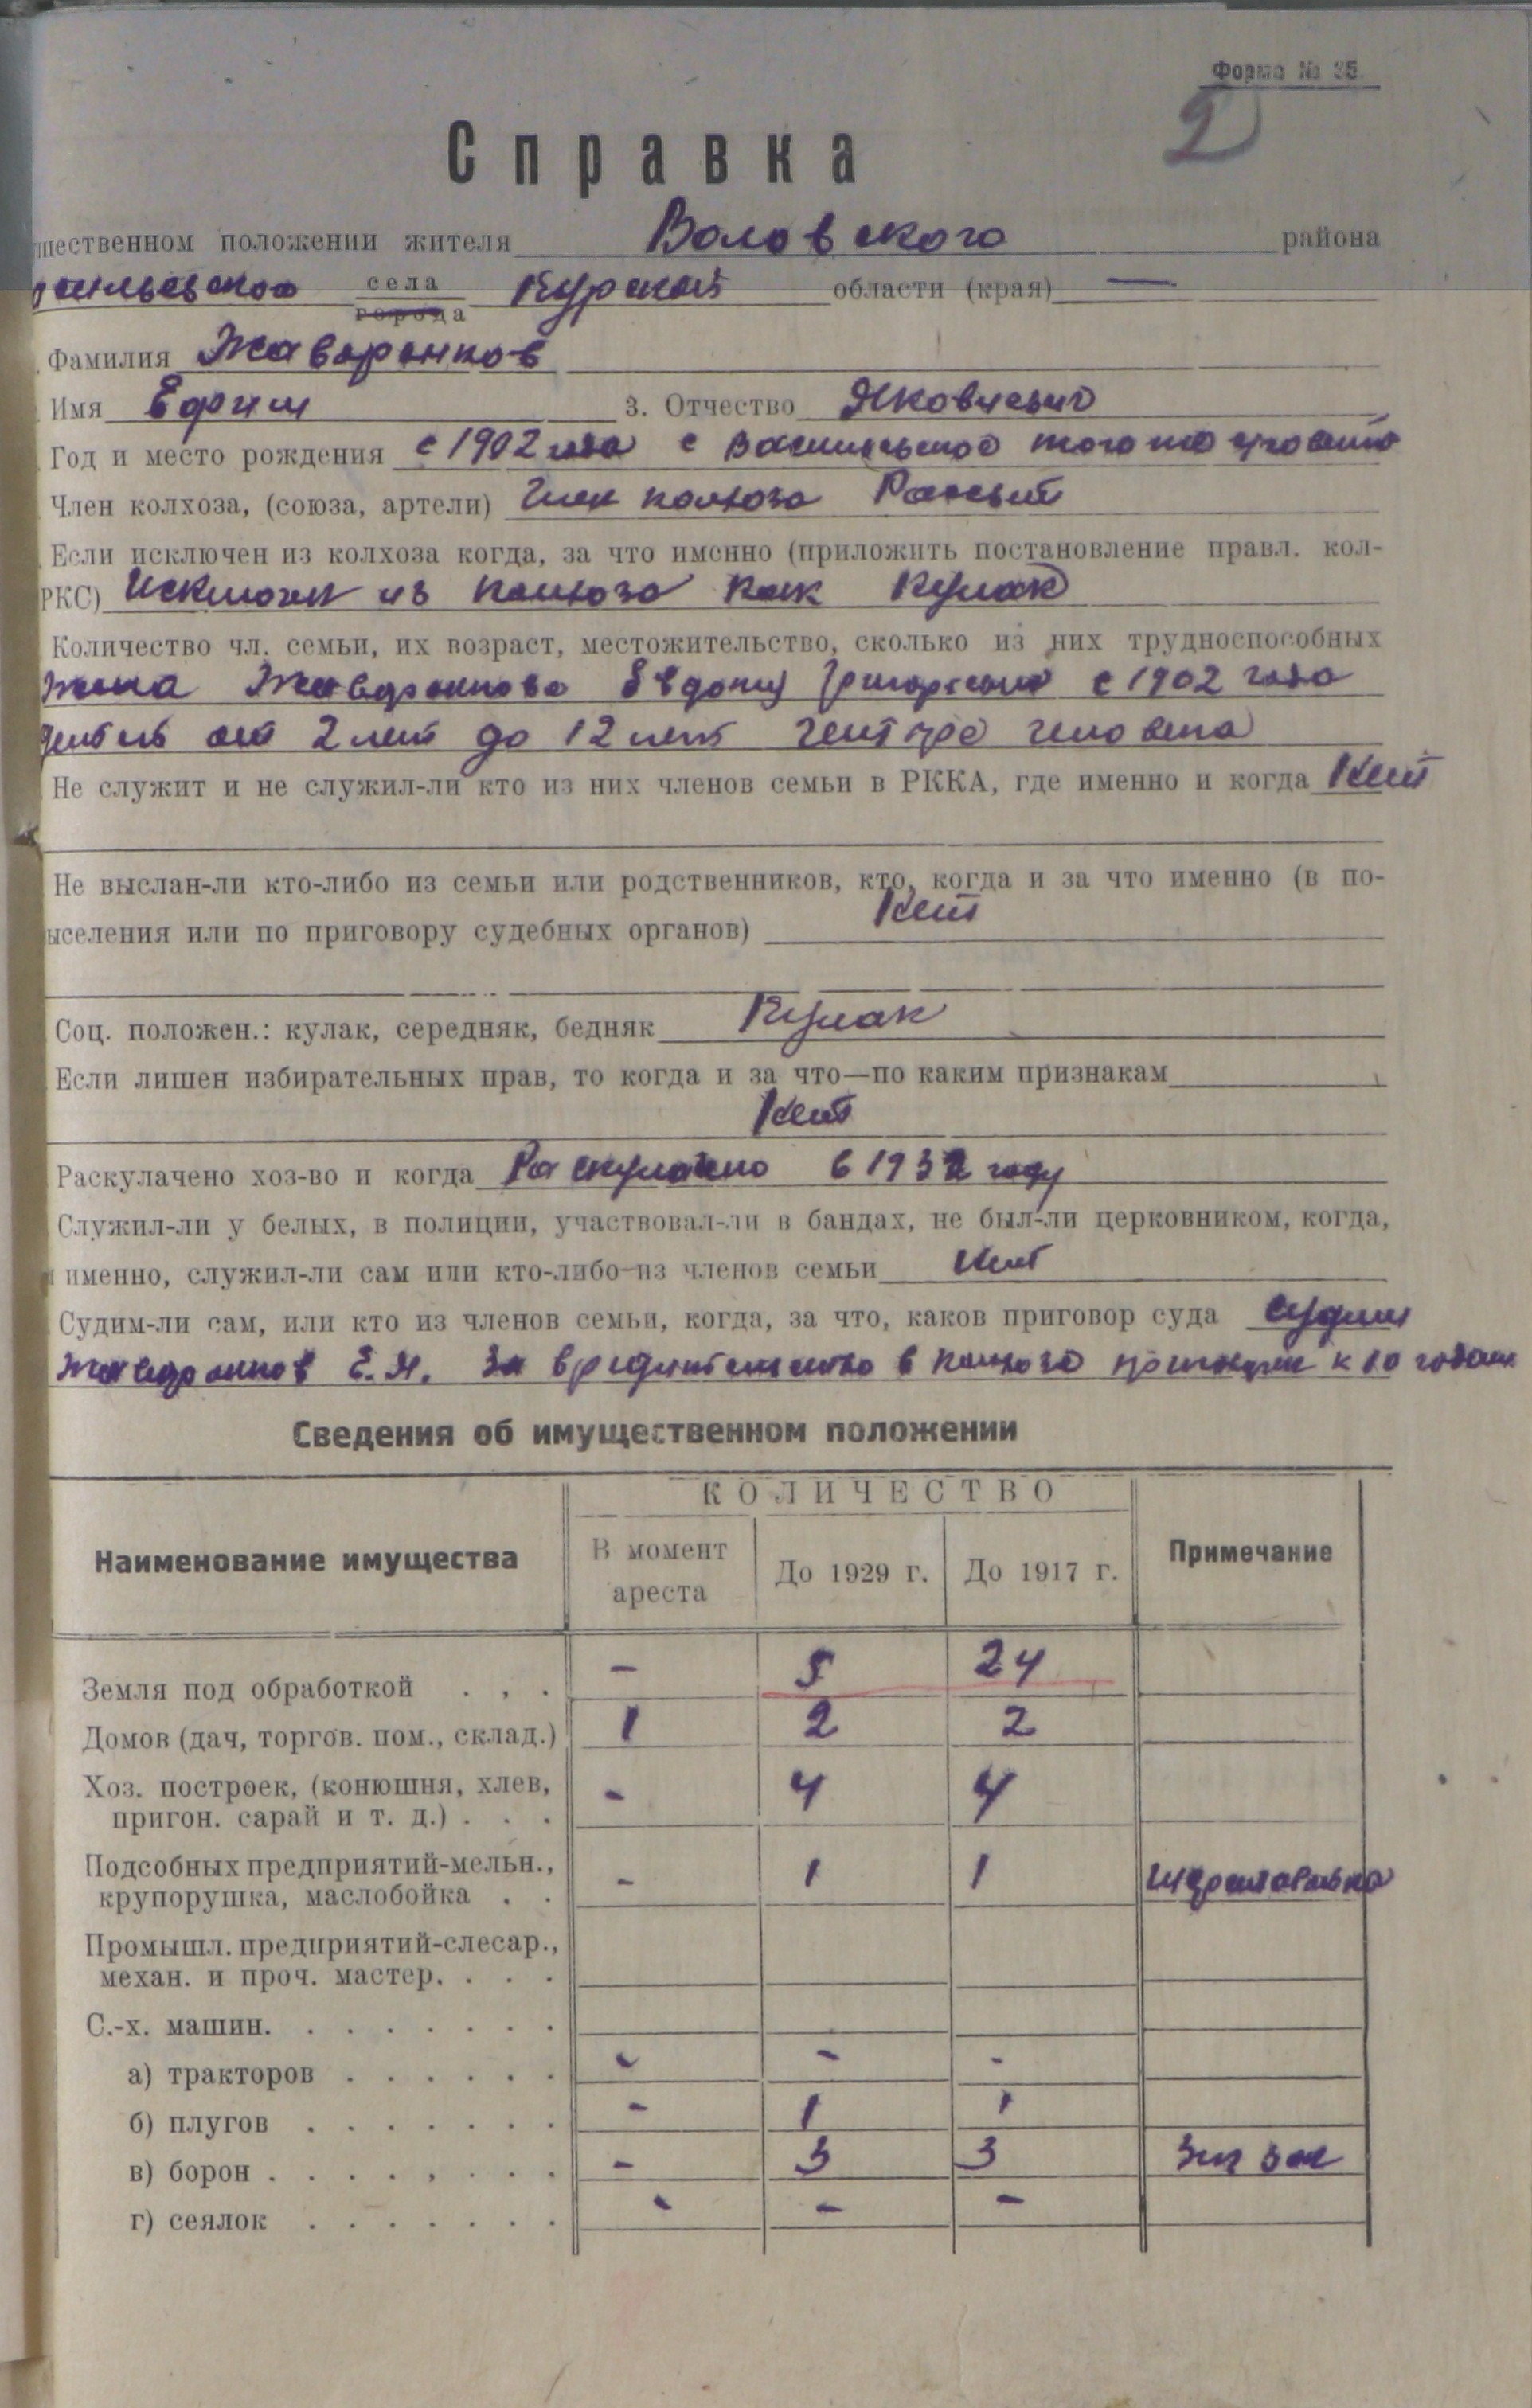 Форма № 35.
2
Справка
щественном положении жителя Воловского района
сильевское села города Курской области (края) —
Фамилия Жаворонков
Имя Ефим 3. Отчество Яковлевич
Год и место рождения с 1902 года с Васильевское того же
Член колхоза, (союза, артели) Член колхоза
Если исключен из колхоза когда, за что именно (приложить постановление правл. кол-
РКС) Исключен из колхоза как Кулак
Количество чл. семьи, их возраст, местожительство, сколько из них трудноспособных
жена Жаворонкова Евдокия Григорьевна с 1902 года
детей от 2 лет до 12 лет человека
Не служит и не служил-ли кто из них членов семьи в РККА, где именно и когда Нет
Не выслан-ли кто-либо из семьи или родственников, кто, когда и за что именно (в по-
ыселения или по приговору судебных органов) Нет
Соц. положен.: кулак, середняк, бедняк Кулак
Если лишен избирательных прав, то когда и за что—по каким признакам
Нет
Раскулачено хоз-во и когда Раскулачено в 1932 году
Служил-ли у белых, в полиции, участвовал-ли в бандах, не был-ли церковником, когда,
именно, служил-ли сам или кто-либо из членов семьи Нет
Судим-ли сам, или кто из членов семьи, когда, за что, каков приговор суда Судим
Жаворонков Е.Я. За вредительство в колхозе к 10 годам
Сведения об имущественном положении
Наименование имущества КОЛИЧЕСТВО Примечание
В момент ареста До 1929 г. До 1917 г.
Земля под обработкой . , . - 5 24
Домов (дач, торгов. пом., склад.) 1 2 2
Хоз. построек, (конюшня, хлев,
пригон. сарай и т. д.) . . . - 4 4
Подсобных предприятий-мельн.,
крупорушка, маслобойка . . - 1 1
Промышл. предприятий-слесар.,
механ. и проч. мастер. . . .
С.-х. машин. . . . . . . .
а) тракторов . . . . . . - - -
б) плугов . . . . . . . - 1 1
в) борон . . . . , . . . - 3 3 Зиг заг
г) сеялок . . . . . . . - - -